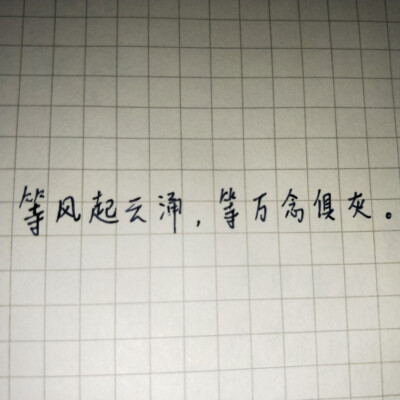 等风起云涌,等万念俱灰。